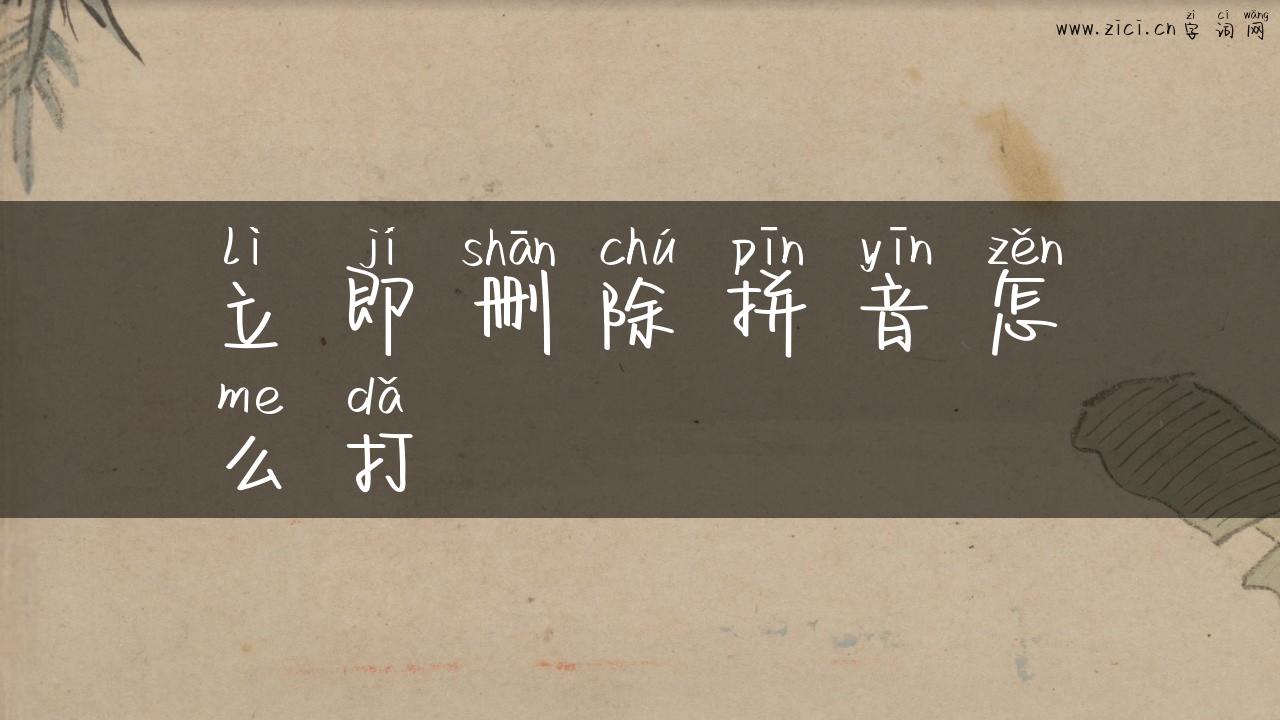 zì cí wǎng
www.zici.cn 字 词 网
lì jí shān chú pīn yīn zěn
立 即 删 除 拼 音 怎
me dǎ
么 打